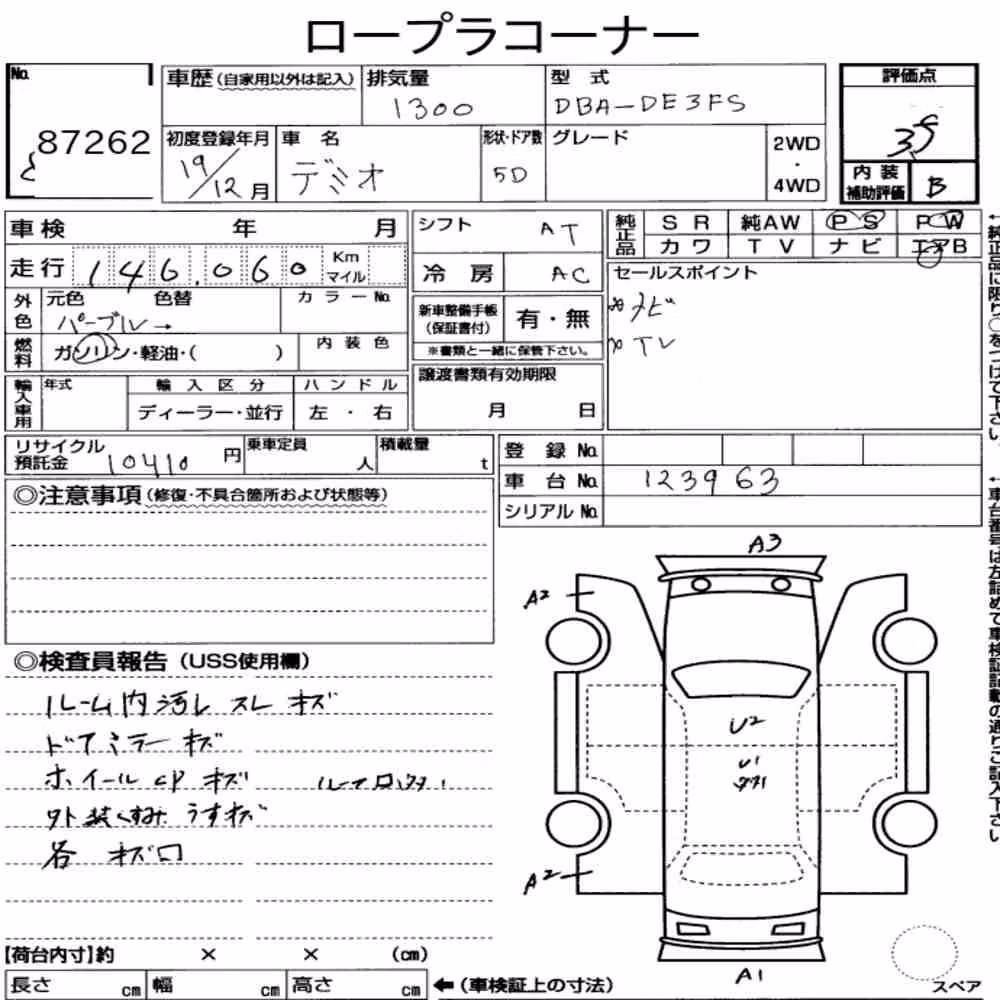 ロープラコーナー
No. 87262
車歴 (自家用以外は記入)
排気量 1300
型式 DBA-DE3FS
評価点 3.5
初度登録年月 19/12月
車名 デミオ
形状・ドア数 5D
グレード
2WD・4WD
内装補助評価 B
車検 年 月
シフト AT
純正品 SR 純AW PS PW
カワ TV ナビ エアB
走行 146,060 Km マイル
冷房 AC
セールスポイント
*ナビ
*TV
外色 元色 色替 カラーNo.
パープル→
新車整備手帳(保証書付) 有・無
※書類と一緒に保管下さい。
燃料 ガソリン・軽油・( )
内装色
譲渡書類有効期限
月 日
輸入車用 年式 輸入区分 ハンドル
ディーラー・並行 左・右
リサイクル預託金 10410円
乗車定員 人
積載量 t
登録No.
車台No. 123963
シリアルNo.
◎注意事項 (修復・不具合箇所および状態等)
◎検査員報告 (USS使用欄)
ルーム内汚レ スレ キズ
ドアミラー キズ
ホイールCP キズ
外装くすみ うすキズ
各 キズ凹
A3
A2
U2
U1
A2
A1
スペア
【荷台内寸】約 × × (cm)
長さ cm 幅 cm 高さ cm
←(車検証上の寸法)
←純正品に限り○をつけて下さい。
←車台番号は左詰めで車検証記載の通りご記入下さい